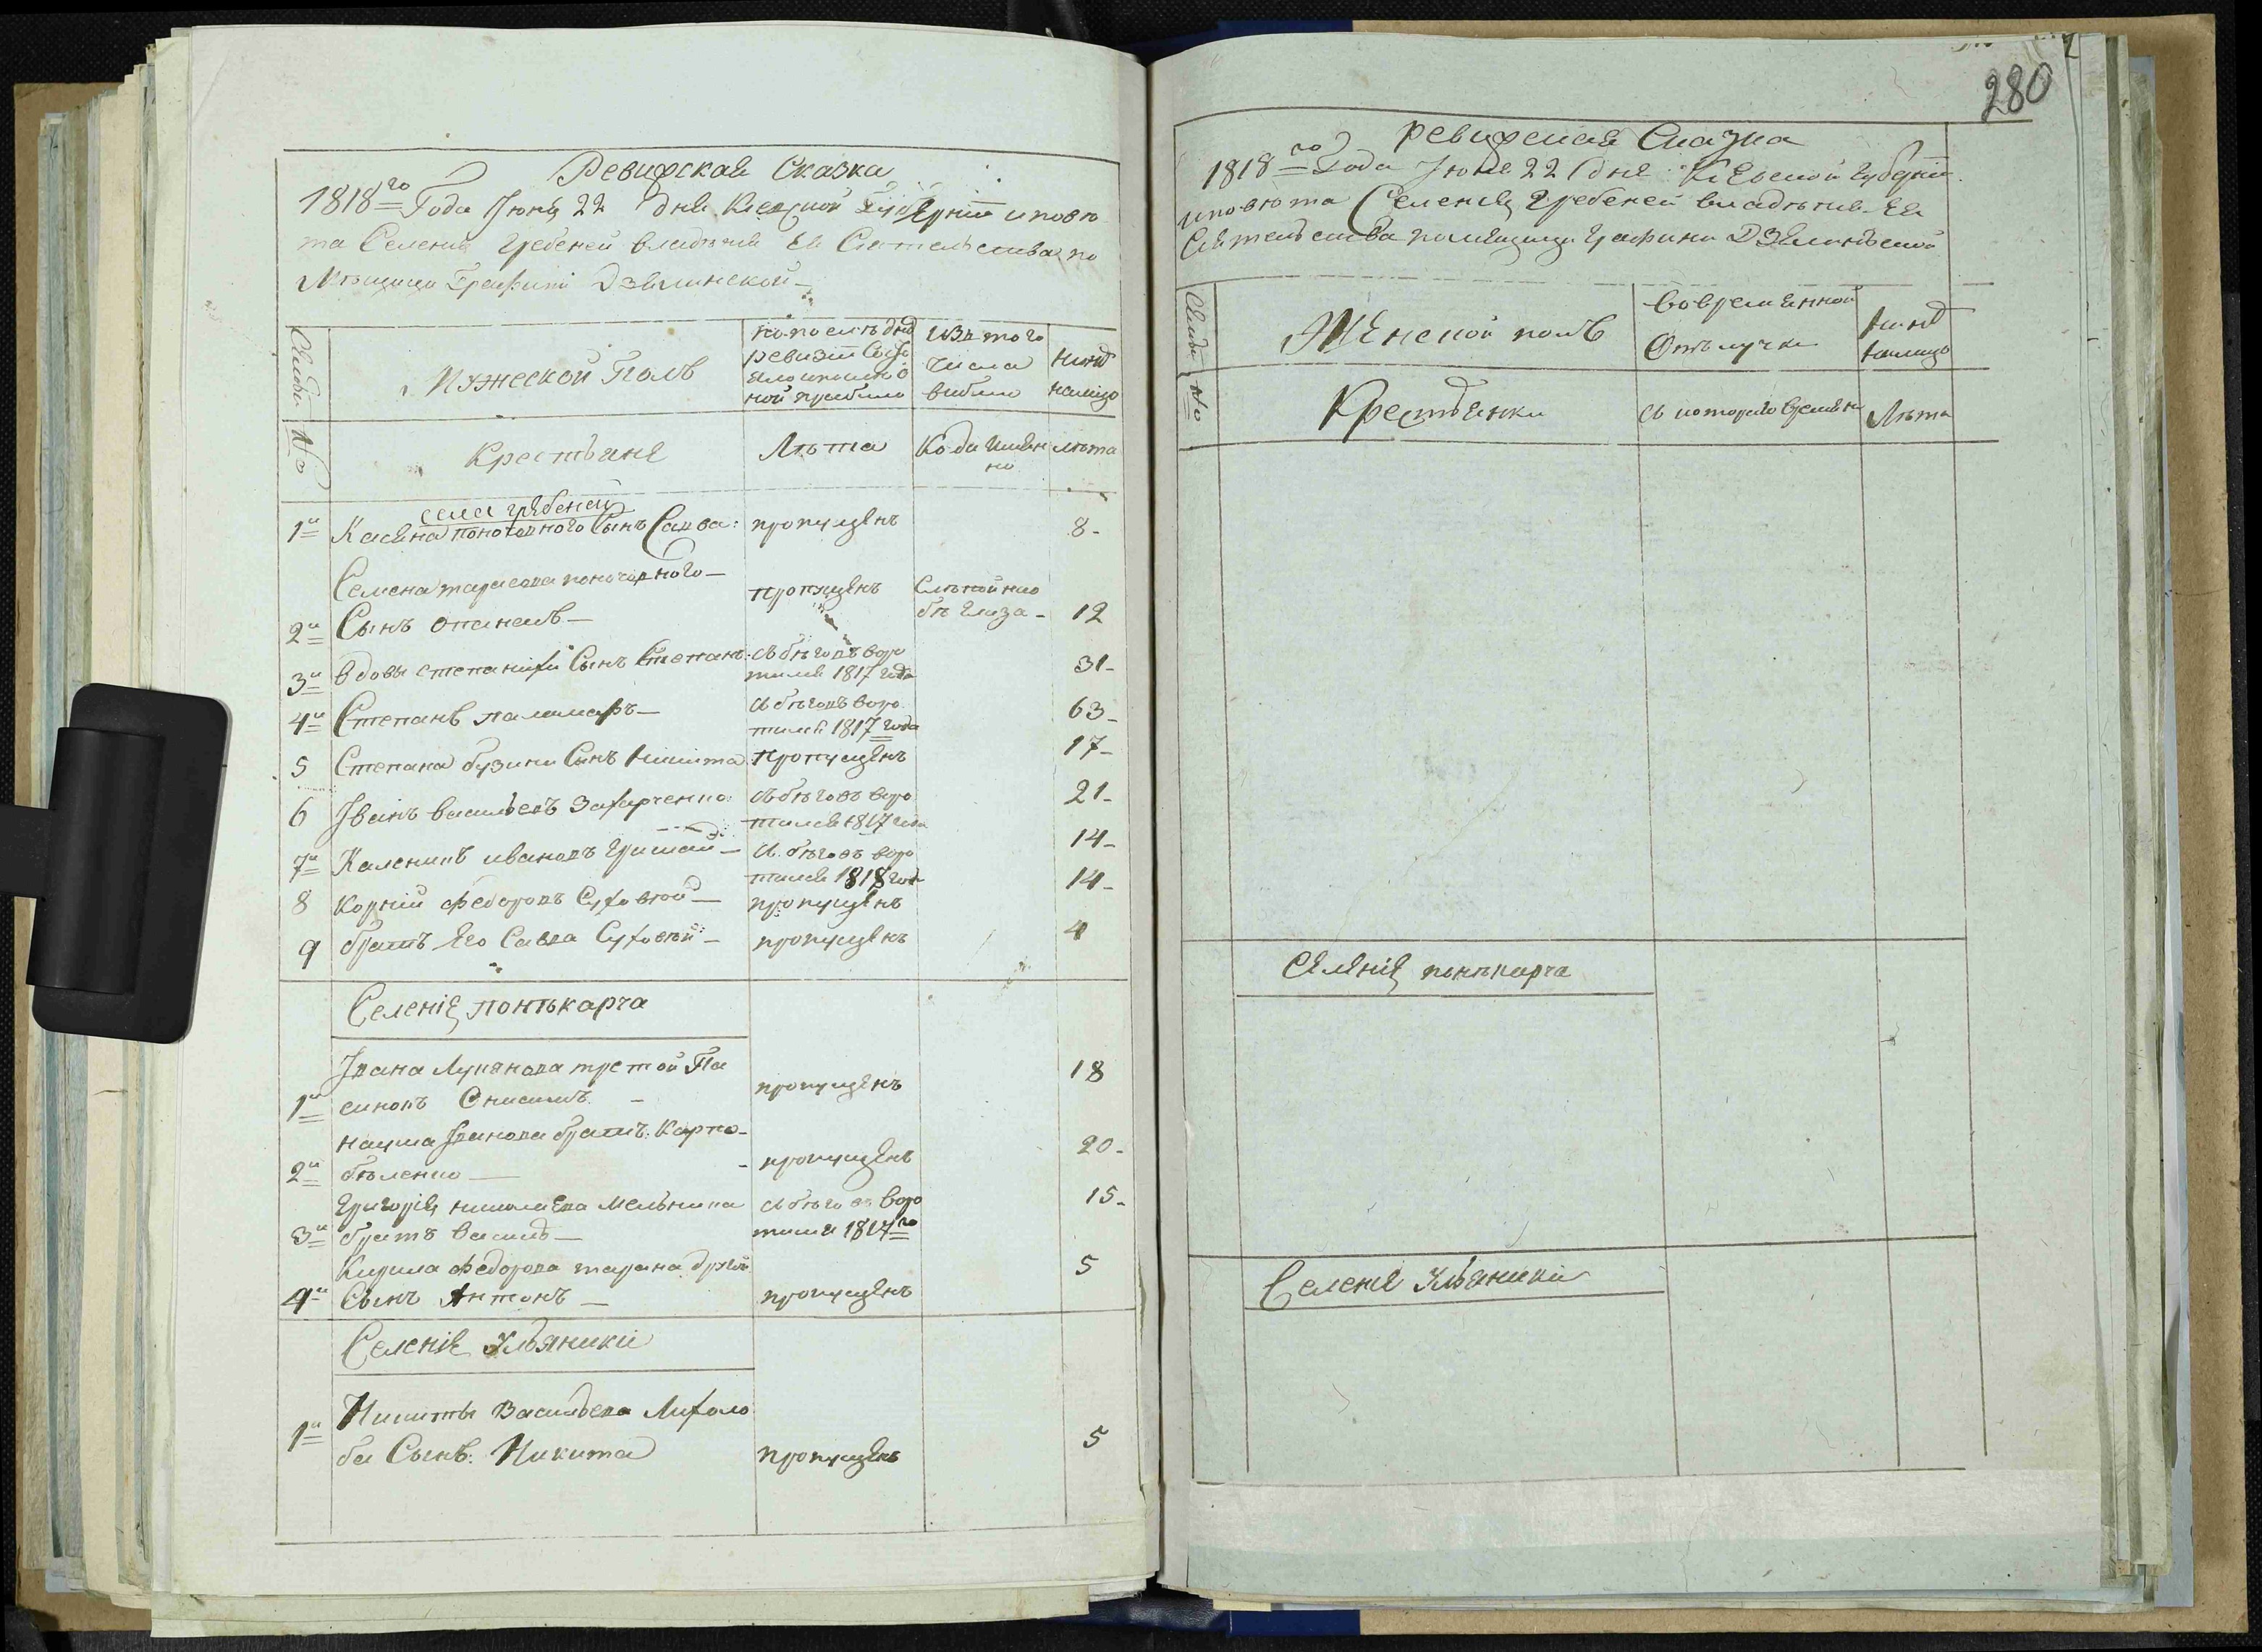 Ревизская Сказка
1818го Года Июня 22 дня Киевской Губернии и повѣ
та Селения Гребеней владѣния Ея Сиятельства по
мѣщицы Графини Дзялинской
Семьи
Мужеской Полъ
По послѣд��ѣй
ревизии состо
яло и после
оной прибыло
Изъ того
числа
выбыло
Нынѣ
налицо
№
Крестьяне
Лѣта
Кода имян
но
лѣта
села гребеней
1й Касяна поночовного Сынъ Савва: пропущенъ 8-
Семена тарасова поночовного-
2й Сынъ Опанасъ- пропущенъ 12
3й вдовы степаниды Сынъ Степанъ: съ бѣговъ воро
тился 1817 года 31-
4й Степанъ паламаръ- съ бѣговъ воро
тился 1817 года 63-
5 Степана бузини Сынъ Никита пропущенъ 17-
6 Иванъ васильевъ Захарченко съ бѣговъ воро
тился 1817 года 21-
7й Каленикъ ивановъ Гришай- съ бѣговъ воро
тился 1818 года 14-
8 Корній федоровъ Суховѣй- пропущенъ 14-
9 братъ Его Савва Суховѣй- пропущенъ 4
Селеніе понѣкарча
Ивана Лукянова
1й Онисимъ - пропущенъ 18
Наума Иванова братъ: Карпо-
2й бѣленко- пропущенъ 20-
Григорія николаева мельника съ бѣговъ воро
3й братъ Василь- тился 1817го 15-
Кирила федорова тарана другой
4й Сынъ Антонъ- пропущенъ 5
Селеніе Ульяники
Никиты Васильева Лихоло
1й ба Сынъ: Никита пропущенъ 5
280
ревизская Сказка
1818го Года Июня 22 дня Киевской Губернии
и повѣта Селения Гребеней владѣния Ея
Сиятельства помѣщицы Графини Дзялинской
Семьи
Женской полъ
Во временной
Отлучке
Нынѣ
налицо
№
Крестьянки
съ которого времени
Лѣта
Селеніе понѣкарча
Селеніе Ульяники